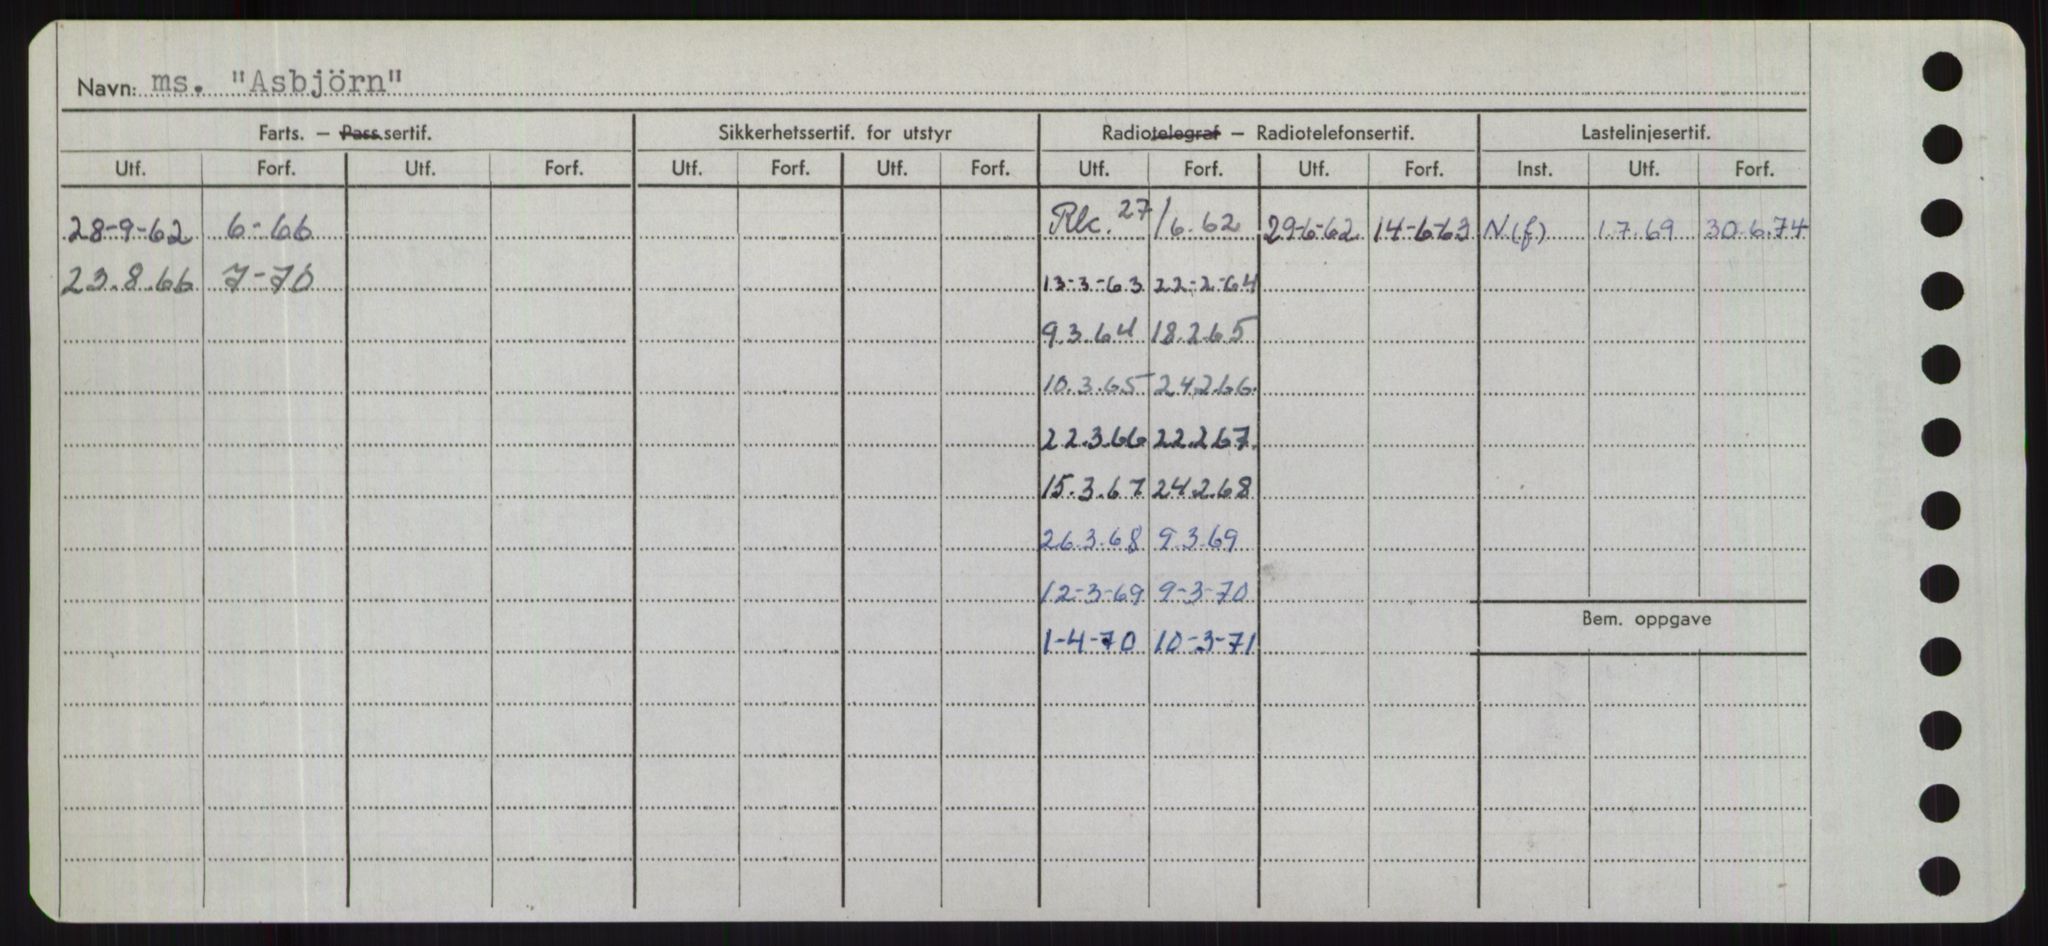 Navn: ms. "Asbjörn"
Farts. – Pass.sertif. Sikkerhetssertif. for utstyr Radiotelegraf – Radiotelefonsertif. Lastelinjesertif.
Utf. Forf. Utf. Forf. Utf. Forf. Utf. Forf. Utf. Forf. Utf. Forf. Inst. Utf. Forf.
28-9-62 6-66 Rk. 27/6.62 29-6-62 14-6-63 N(f) 1.7.69 30.6.74
23.8.66 7-70 13-3-63 22-2-64
9.3.64 18.2.65
10.3.65 24.2.66.
22.3.66 22.2.67.
15.3.67 24.2.68
26.3.68 9.3.69
12-3-69 9-3-70
Bem. oppgave
1-4-70 10-3-71